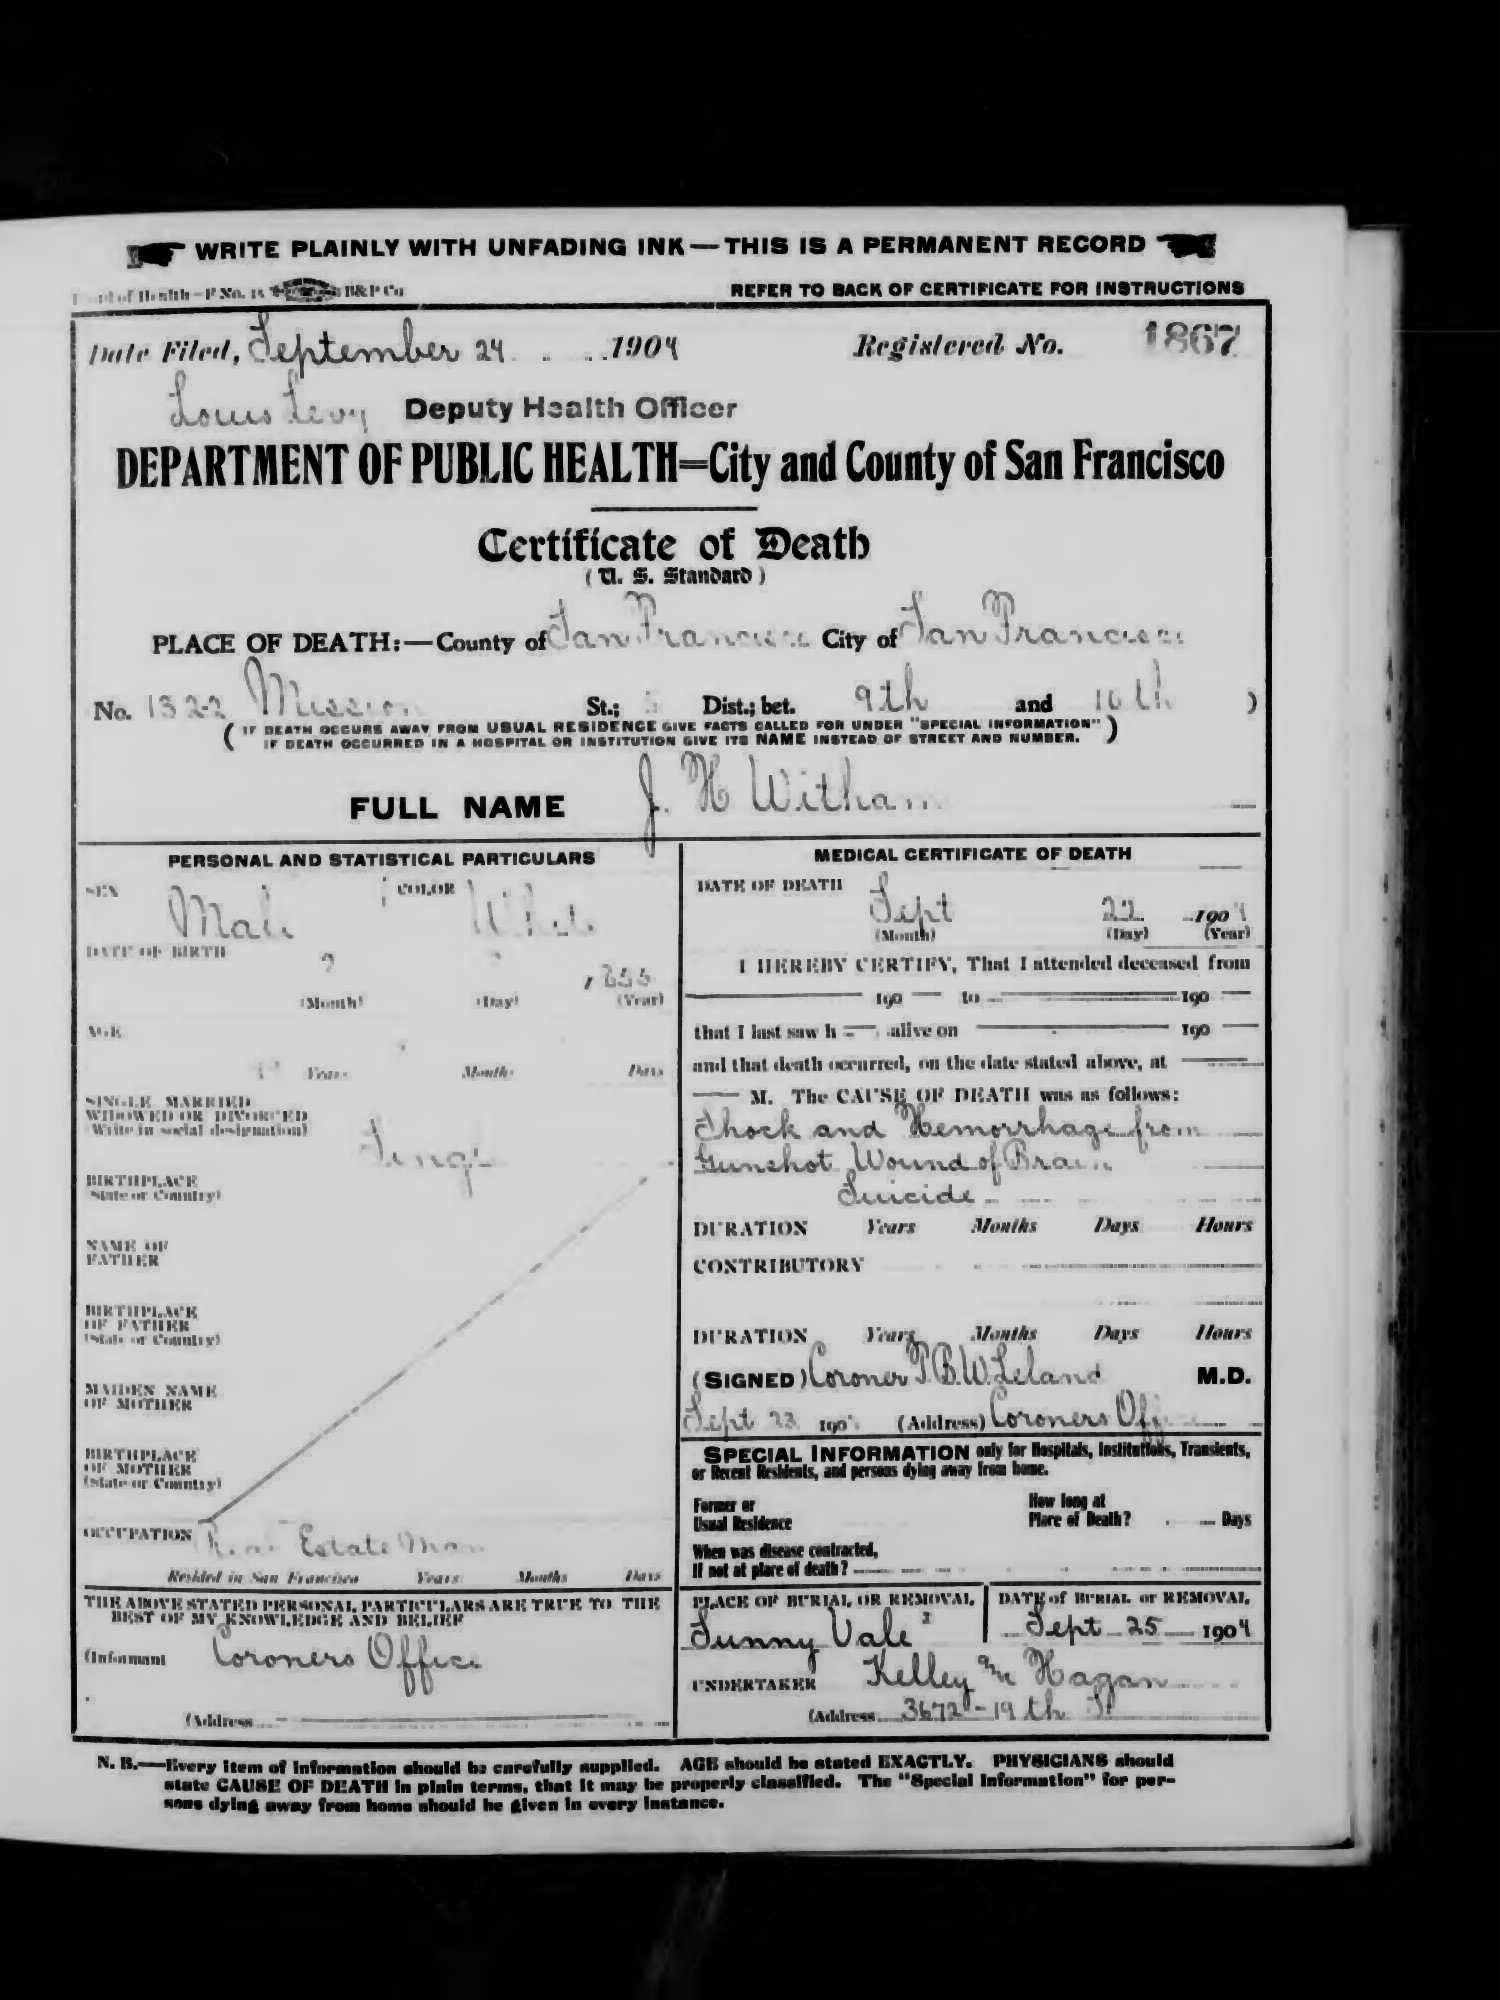 WRITE PLAINLY WITH UNFADING INK — THIS IS A PERMANENT RECORD
of Health—F No. 15 B&P Co
REFER TO BACK OF CERTIFICATE FOR INSTRUCTIONS
Date Filed, September 24 1904 Registered No. 1867
Louis Levy Deputy Health Officer
DEPARTMENT OF PUBLIC HEALTH=City and County of San Francisco
Certificate of Death
(U. S. Standard)
PLACE OF DEATH:—County of San Francisco City of San Francisco
No. 1322 Mission St.; Dist.; bet. 9th and 10th )
( IF DEATH OCCURS AWAY FROM USUAL RESIDENCE GIVE FACTS CALLED FOR UNDER "SPECIAL INFORMATION" )
IF DEATH OCCURRED IN A HOSPITAL OR INSTITUTION GIVE ITS NAME INSTEAD OF STREET AND NUMBER.
FULL NAME J. H Witham
PERSONAL AND STATISTICAL PARTICULARS
SEX Male COLOR White
DATE OF BIRTH ? ? 1855
(Month) (Day) (Year)
AGE
Years Months Days
SINGLE MARRIED
WIDOWED OR DIVORCED
(Write in social designation) Single
BIRTHPLACE
(State or Country)
NAME OF
FATHER
BIRTHPLACE
OF FATHER
(State or Country)
MAIDEN NAME
OF MOTHER
BIRTHPLACE
OF MOTHER
(State or Country)
OCCUPATION Real Estate Man
Resided in San Francisco Years Months Days
THE ABOVE STATED PERSONAL PARTICULARS ARE TRUE TO THE
BEST OF MY KNOWLEDGE AND BELIEF
(Informant Coroners Office
(Address
MEDICAL CERTIFICATE OF DEATH
DATE OF DEATH Sept 22 1904
(Month) (Day) (Year)
I HEREBY CERTIFY, That I attended deceased from
190 to 190
that I last saw h alive on 190
and that death occurred, on the date stated above, at
M. The CAUSE OF DEATH was as follows:
Shock and Hemorrhage from
Gunshot Wound of Brain
Suicide
DURATION Years Months Days Hours
CONTRIBUTORY
DURATION Years Months Days Hours
(SIGNED) Coroner T. B. W. Leland M.D.
Sept 23 190 (Address) Coroners Office
SPECIAL INFORMATION only for Hospitals, Institutions, Transients,
or Recent Residents, and persons dying away from home.
Former or
Usual Residence
How long at
Place of Death? Days
When was disease contracted,
If not at place of death?
PLACE OF BURIAL OR REMOVAL
Sunny Vale
DATE of BURIAL or REMOVAL
Sept 25 1904
UNDERTAKER Kelley Hagan
(Address 3672 - 19th St
N. B.—Every item of information should be carefully supplied. AGE should be stated EXACTLY. PHYSICIANS should
state CAUSE OF DEATH in plain terms, that it may be properly classified. The "Special Information" for per-
sons dying away from home should be given in every instance.